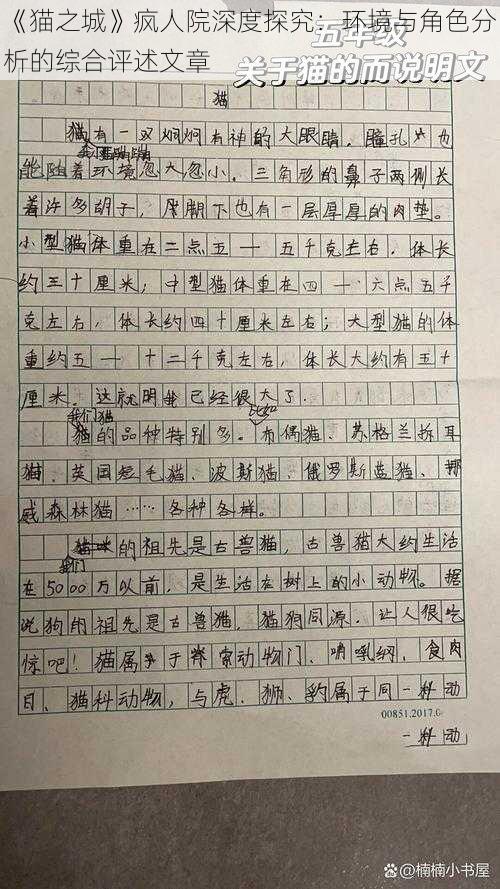 《猫之城》疯人院深度探究：环境与角色分
析的综合评述文章
五年级
关于猫的而说明文
猫
猫有一双炯炯有神的大眼睛，瞳孔也
能随着环境忽大忽小。三角形的鼻子两侧长
着许多胡子，脚下也有一层厚厚的肉垫。
小型猫体重在二点五一十五千克左右，体长
约三十厘米；中型猫体重在四一六点五千
克左右，体长约四十厘米左右；大型猫的体
重约五一十二千克左右，体长大约有五十
厘米，这就明我已经很大了．
我们猫
比如
猫的品种特别多。布偶猫、苏格兰拆耳
猫、英国短毛猫、波斯猫、俄罗斯蓝猫、挪
威森林猫……各种各样。
的祖先是古兽猫，古兽猫大约生活
我们
在5000万以前，是生活在树上的小动物。据
说狗的祖先是古兽猫，猫狗同源，让人很吃
惊吧！猫属于脊索动物门、哺乳纲、食肉
目、猫科动物，与虎、狮、豹属于同一科动
00851.2017.6
一科动
@楠楠小书屋